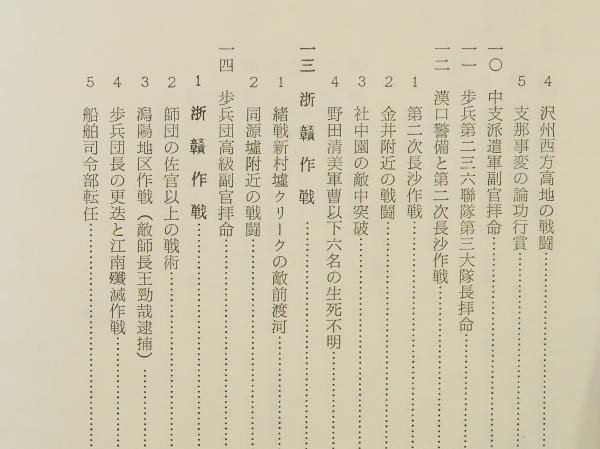 4 沢州西方高地の戦闘
5 支那事変の論功行賞
一〇 中支派遣軍副官拝命
一一 歩兵第二三六聯隊第三大隊長拝命
一二 漢口警備と第二次長沙作戦
1 第二次長沙作戦
2 金井附近の戦闘
3 社中園の敵中突破
4 野田清美軍曹以下六名の生死不明
一三 浙贛作戦
1 緒戦新村墟クリークの敵前渡河
2 同源墟附近の戦闘
一四 歩兵団高級副官拝命
1 浙贛作戦
2 師団の佐官以上の戦術
3 潟陽地区作戦(敵師長王勁哉逮捕)
4 歩兵団長の更迭と江南殲滅作戦
5 船舶司令部転任